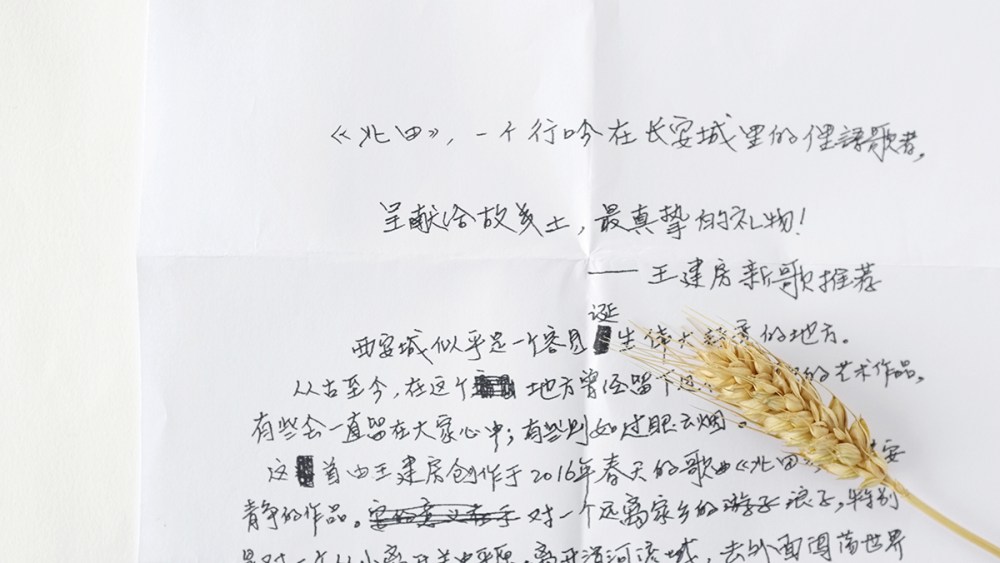 《北田》，一个行吟在长安城里的俚语歌者，
呈献给故乡土，最真挚的礼物！
——王建房新歌推荐
西安城似乎是一个容易诞生伟大的地方。
从古至今，在这个地方曾经留下过的艺术作品，
有些会一直留在大家心中；有些则如过眼云烟。
这首由王建房创作于2016年春天的歌曲《北田》，安
静的作品。对一个远离家乡的游子浪子，特别
是对一个从小离开关中平原，离开渭河，去外面闯荡世界